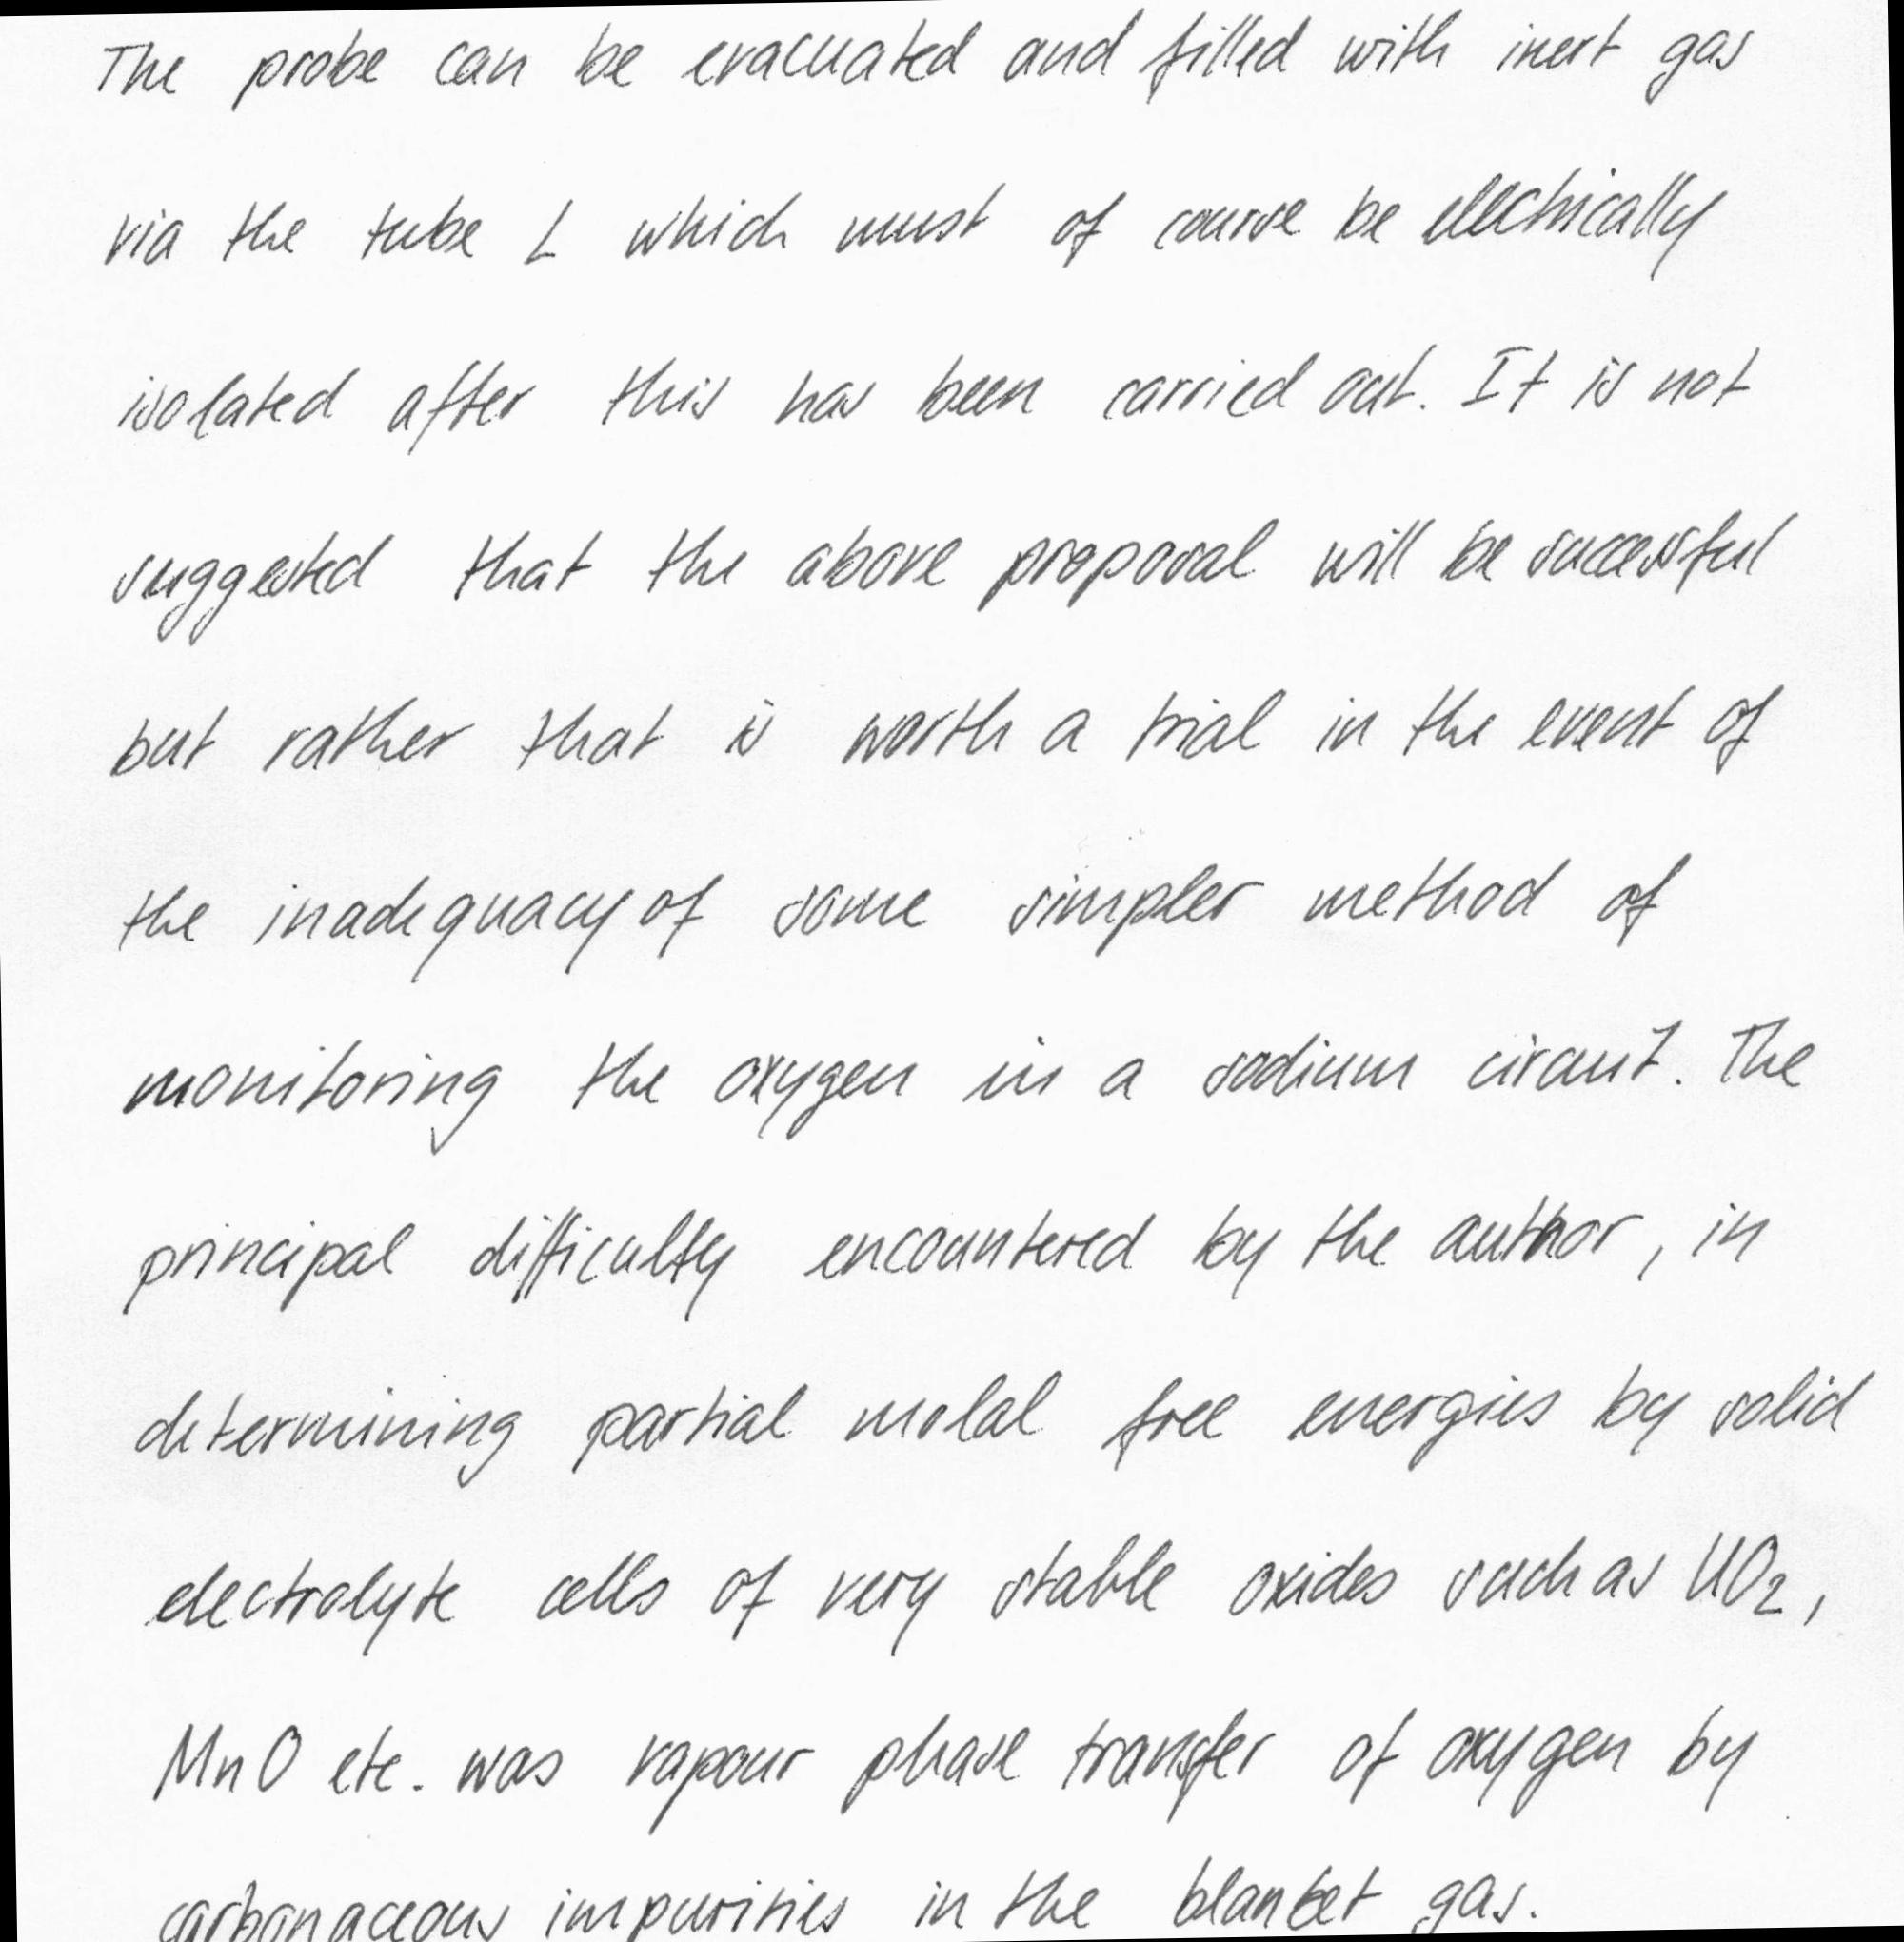 The probe can be evacuated and filled with inert gas
via the tube L which must of course be electrically
isolated after this has been carried out. It is not
suggested that the above proposal will be successful
but rather that is worth a trial in the event of
the inadequacy of some simpler method of
monitoring the oxygen in a sodium circuit. The
principal difficulty encountered by the author, in
determining partial molal free energies by solid
electrolyte cells of very stable oxides such as UO2,
MnO etc. was vapour phase transfer of oxygen by
carbonaceous impurities in the blanket gas.